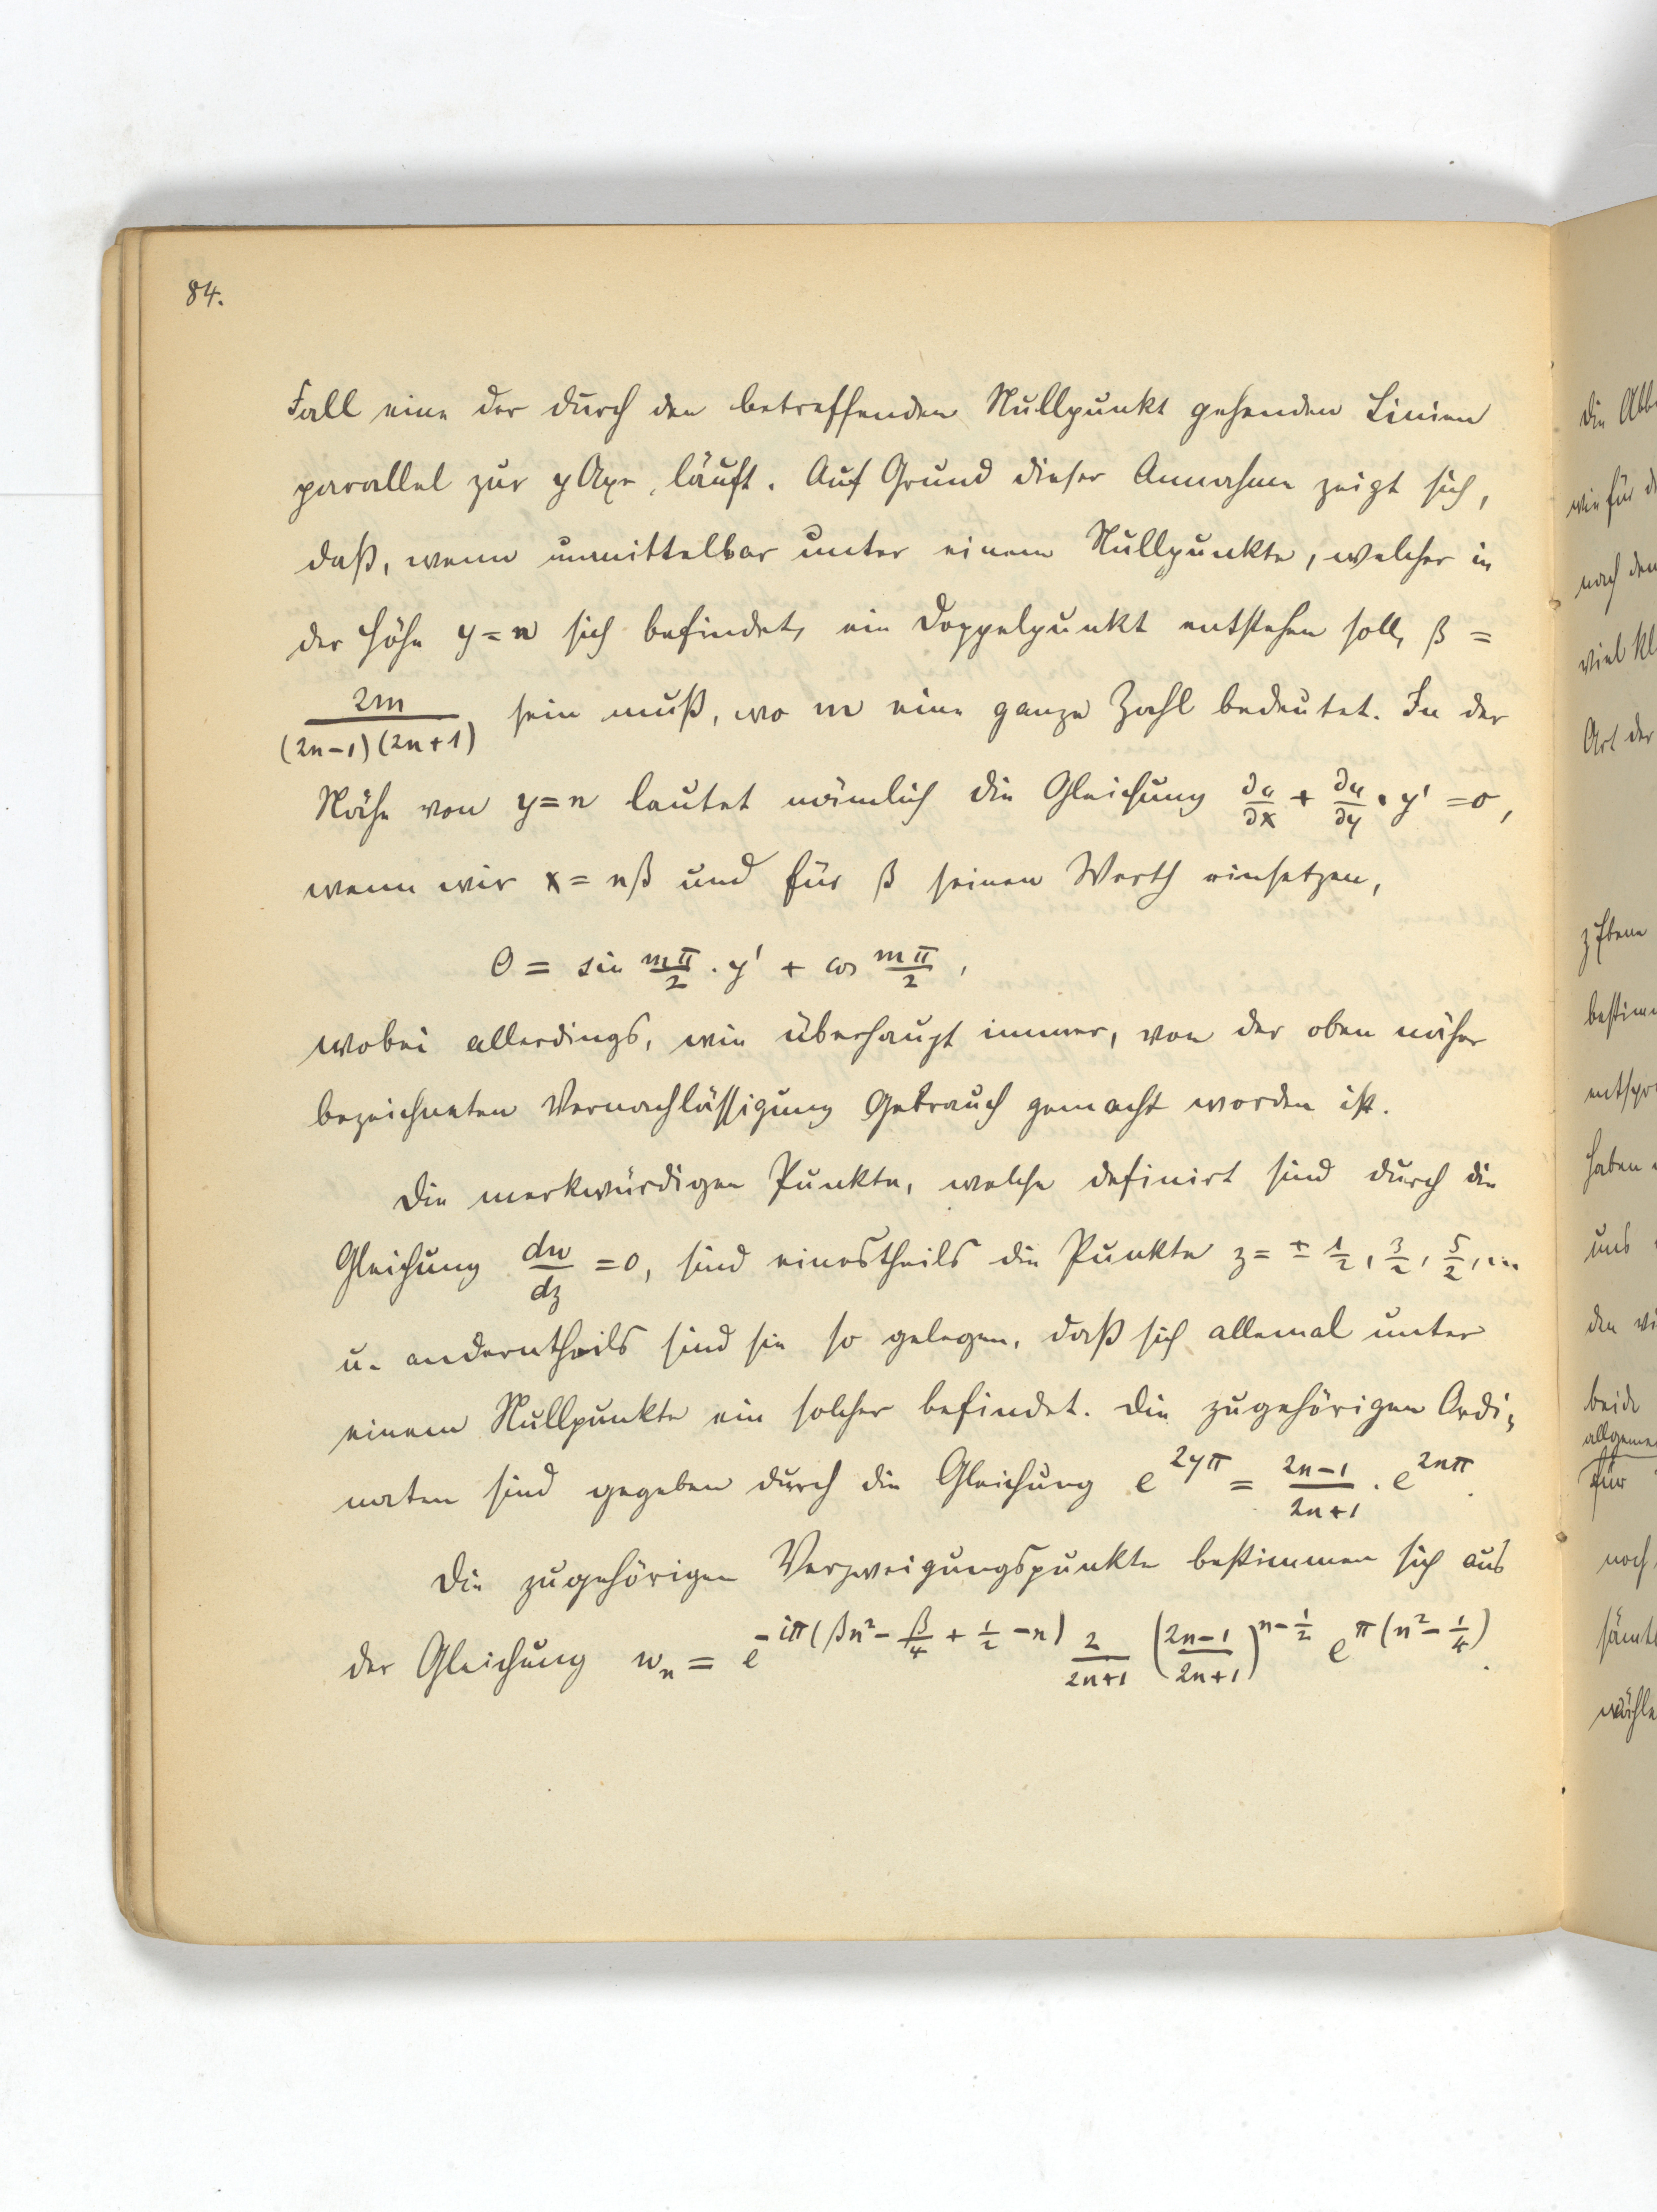 84.
Fall eine der durch den betreffenden Nullpunkt gehenden Linien
parallel zur y Axe läuft. Auf Grund dieser Annahme zeigt sich,
daß, wenn unmittelbar unter einem Nullpunkte, welcher in
der Höhe y = n sich befindet, ein Doppelpunkt entstehen soll, β =
2m/((2n-1)(2n+1)) sein muß, wo m eine ganze Zahl bedeutet. In der
Nähe von y = n lautet nämlich die Gleichung ∂u/∂x + ∂u/∂y · y' = 0,
wenn wir x = nβ und für β seinen Werth einsetzen,
0 = sin mπ/2 · y' + cos mπ/2,
wobei allerdings, wie überhaupt immer, von der oben näher
bezeichneten Vernachlässigung Gebrauch gemacht worden ist.
Die merkwürdigen Punkte, welche definirt sind durch die
Gleichung dw/dz = 0, sind einestheils die Punkte z = ± 1/2, 3/2, 5/2, ...
u. anderntheils sind sie so gelegen, daß sich allemal unter
einem Nullpunkte ein solcher befindet. Die zugehörigen Ordi-
naten sind gegeben durch die Gleichung e^{2yπ} = (2n-1)/(2n+1) · e^{2nπ}.
Die zugehörigen Verzweigungspunkte bestimmen sich aus
der Gleichung w_n = e^{-iπ(βn² - β/4 + 1/2 - n)} 2/(2n+1) ((2n-1)/(2n+1))^{n-1/2} e^{π(n² - 1/4)}.
die Abb
wie für d
nach den
viel kl
Art der
z Ebene
bestimm
entspr
haben
und
den wi
beide
allgemei
für
noch
sämt
wähle